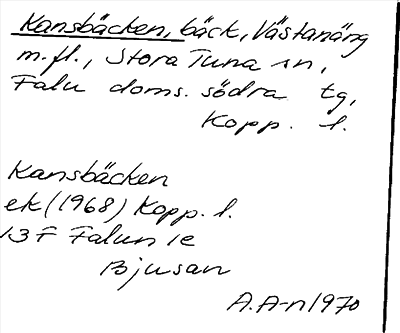 Kansbäcken, bäck, Västanärg
m.fl., Stora Tuna sn,
Falu doms. södra tg,
Kopp. l.
Kansbäcken
ek (1968) Kopp. l.
13 F Falun 1e
Bjusan
A.A-n 1970